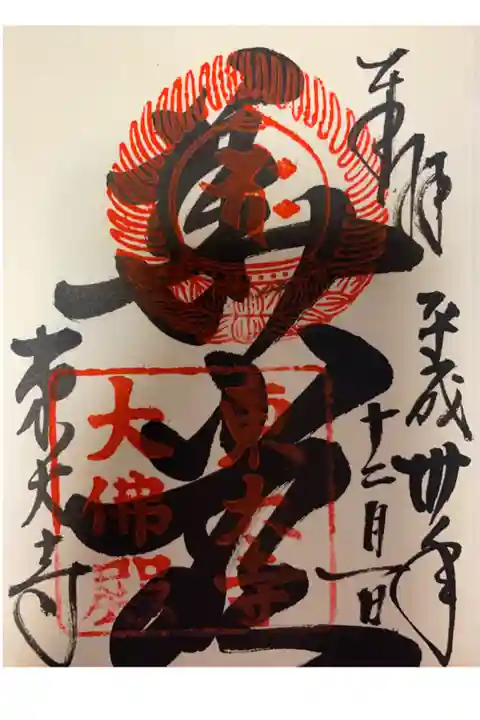 奉拝
平成卅年
十二月一日
華嚴
東大寺
大佛殿
東大寺